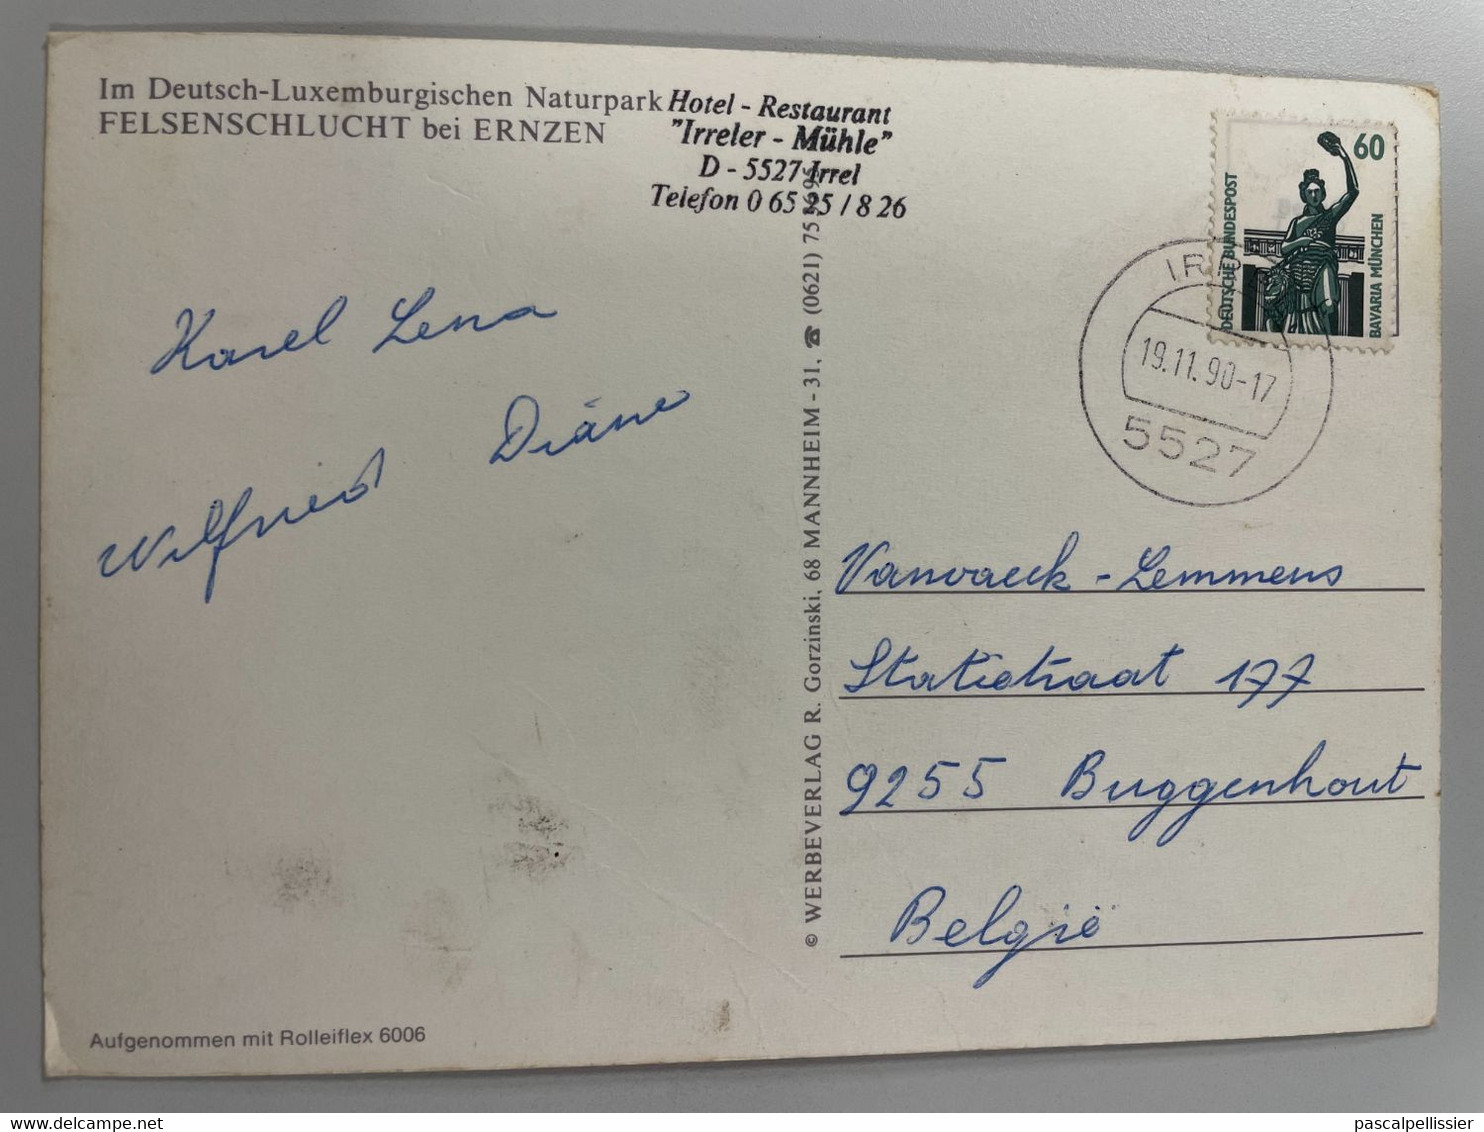 Im Deutsch-Luxemburgischen Naturpark
FELSENSCHLUCHT bei ERNZEN
Hotel - Restaurant
"Irreler - Mühle"
D - 5527 Irrel
Telefon 0 65 25 / 8 26
60
DEUTSCHE BUNDESPOST
BAVARIA MÜNCHEN
19.11.90-17
5527
Karel Lena
Wilfried Diäne
© WERBEVERLAG R. Gorzinski, 68 MANNHEIM - 31, ☎ (0621) 75
Vanvaeck - Lemmens
Statiestraat 177
9255 Buggenhout
Belgïe
Aufgenommen mit Rolleiflex 6006
delcampe.net
pascalpellissier